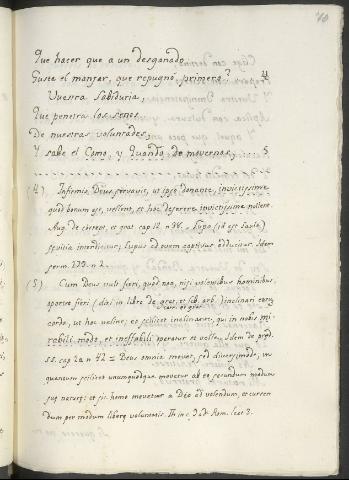 70
Que hacer que a un desganado
Guste el manjar, que repugnó primero? 4
Vuestra Sabiduria,
Que penetra los senos
De nuestras voluntades,
Y sabe el Como, y Quando, de movernos, 5
(4) Infirmis, Deus servavit, ut ipso donante, invictissime
quod bonum est, vellent, et hoc deserere invictissime nollent.
Aug. de corrept. et grat cap. 12. n. 38. = Lupo (id est Saulo)
sævitia interdicitur; Lupus ad ovem captivus adducitur. Idem
serm. 279. n. 2.
(5) Cum Deus vult fieri, quod non, nisi volentibus hominibus,
oportet fieri (dais in libro de grat. et lib. arb.) inclinari eorum
corda, ut hoc velint; eo scilicet inclinante, qui in nobis mi-
rabili modo, et ineffabili operatur et velle. Idem de præd.
SS. cap. 20. n. 42 = Deus omnia movet, sed diversimode, in
quantum scilicet unumquodque movetur ab eo secundum modum
suæ naturæ: et sic homo movetur a Deo ad volendum, et curren-
dum per modum liberæ voluntatis. Th. in c. 9. ad Rom. lect 3.